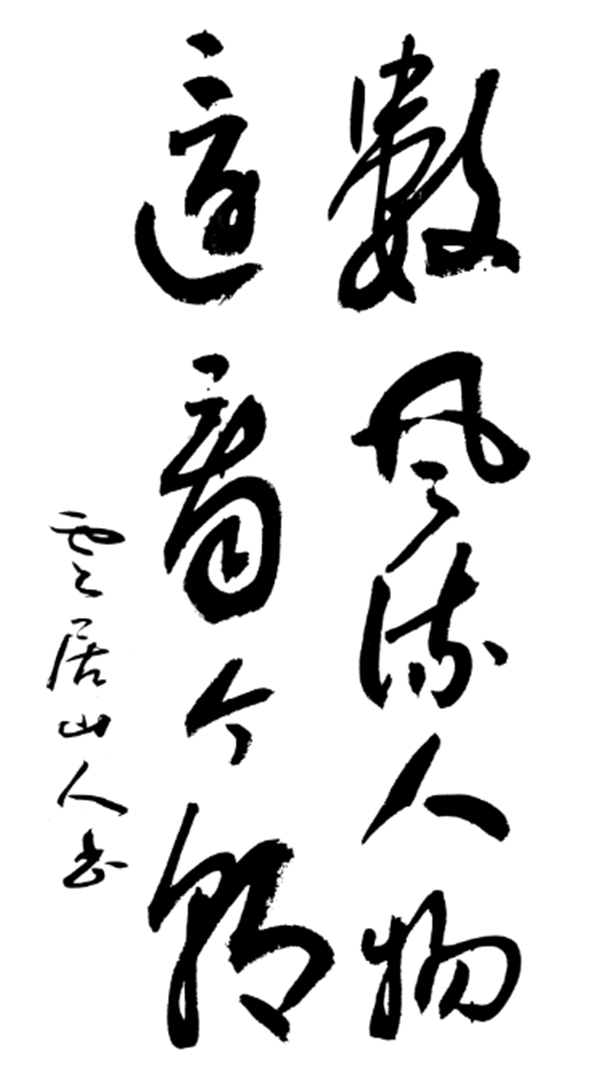 數風流人物
還看今朝
雲居山人書